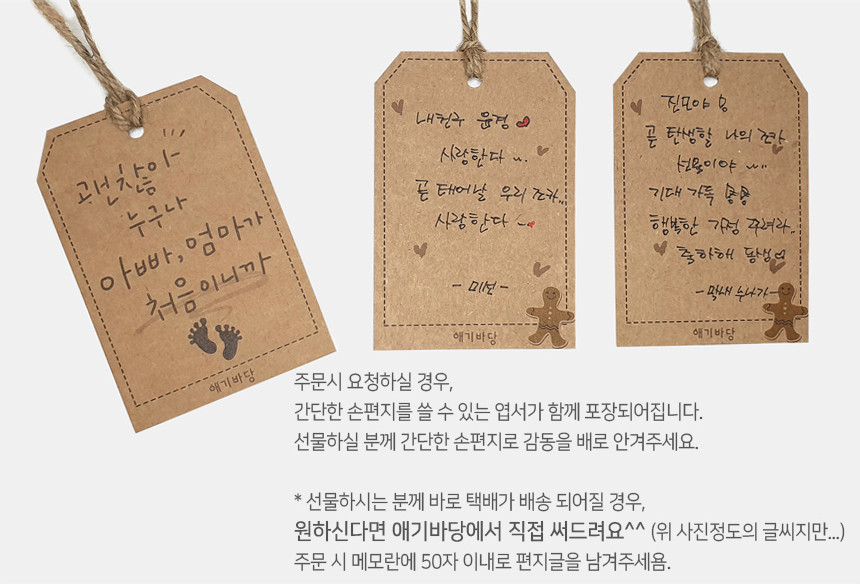 괜찮아
누구나
아빠, 엄마가
처음이니까
애기바당
내친구 윤경
사랑한다
곧 태어날 우리 조카..
사랑한다
- 미선 -
애기바당
진모야
곧 탄생할 나의 조카
선물이야
기대 가득
행복한 가정 꾸려라..
축하해 동생
- 막내 누나가 -
애기바당
주문시 요청하실 경우,
간단한 손편지를 쓸 수 있는 엽서가 함께 포장되어집니다.
선물하실 분께 간단한 손편지로 감동을 배로 안겨주세요.
* 선물하시는 분께 바로 택배가 배송 되어질 경우,
원하신다면 애기바당에서 직접 써드려요^^ (위 사진정도의 글씨지만...)
주문 시 메모란에 50자 이내로 편지글을 남겨주세욤.